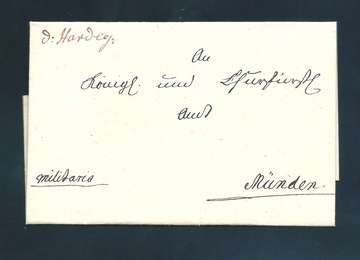 d: Hardeg:
An
Königl. und Churfürstl.
Amt
militaria
Münden.